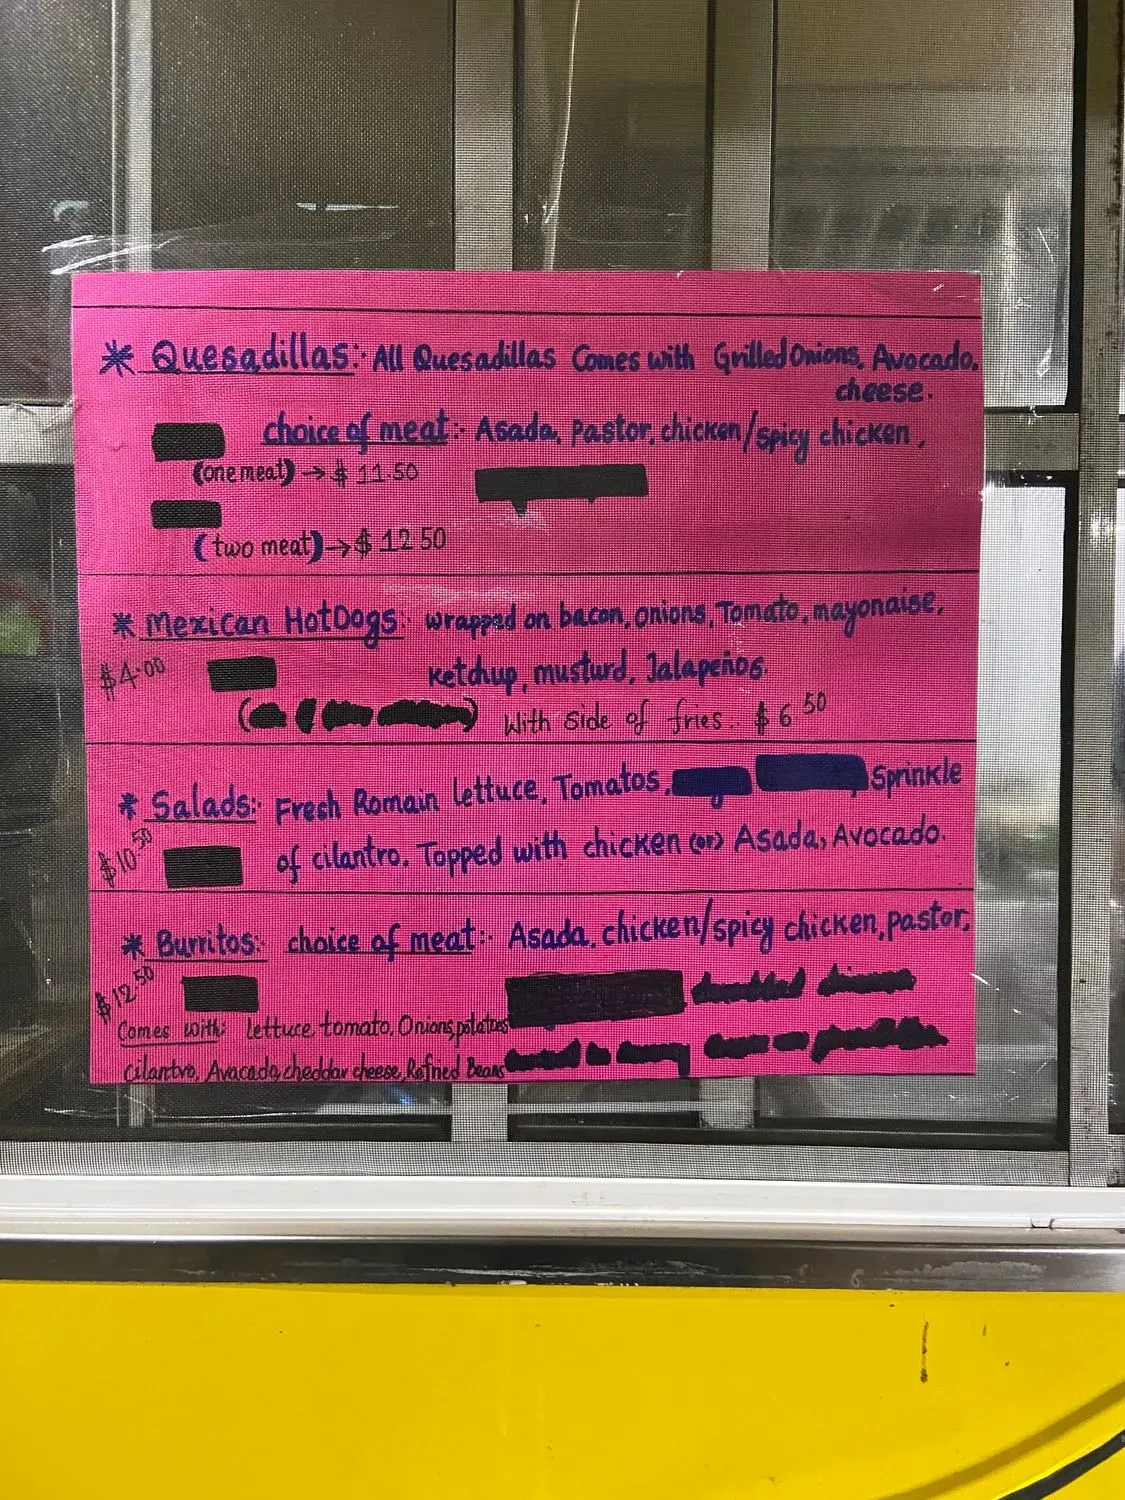 * Quesadillas:- All Quesadillas Comes with Grilled Onions, Avocado,
cheese.
choice of meat:- Asada, Pastor, chicken/spicy chicken,
(one meat) → $ 11.50
(two meat) → $ 12 50
* Mexican HotDogs: wrapped on bacon, onions, Tomato, mayonaise,
$4.00 Ketchup, musturd, Jalapeños.
With side of fries.. $ 6 50
* Salads:- Fresh Romain lettuce, Tomatos, Sprinkle
$10.50 of cilantro. Topped with chicken (or) Asada, Avocado.
* Burritos:- choice of meat:- Asada, chicken/spicy chicken, pastor,
$12.50
Comes with: lettuce, tomato, Onions, potatoes
cilantro, Avacado, cheddar cheese, Refried Beans